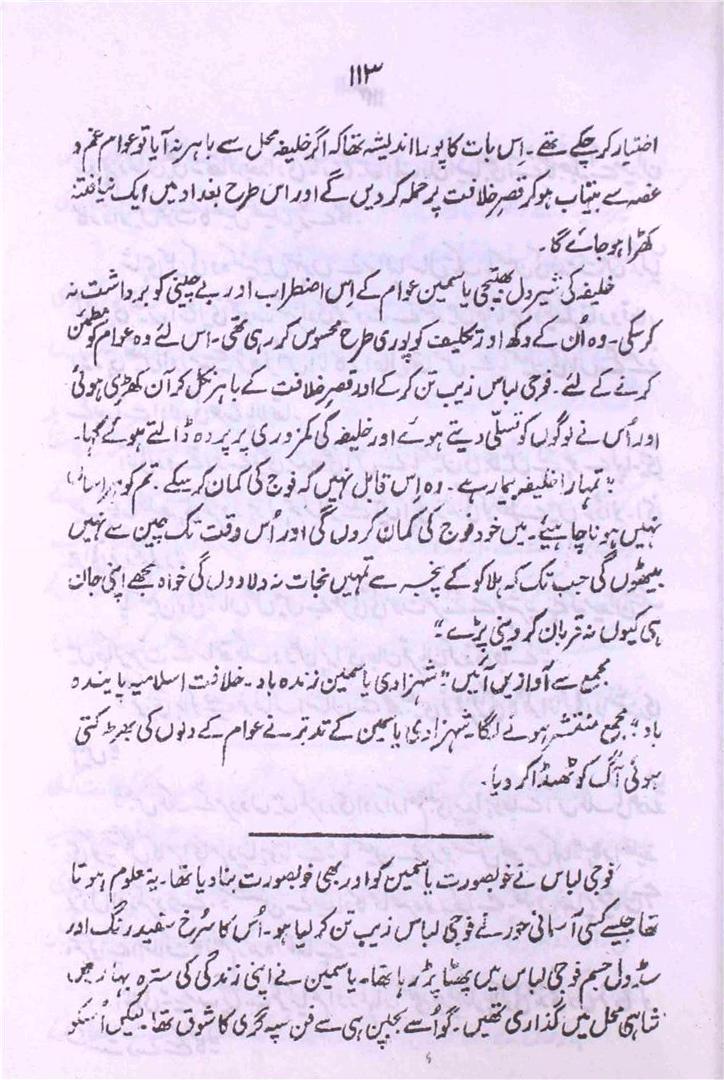 ۱۱۳
اختیار کر چکے تھے۔ اِس بات کا پورا اندیشہ تھا کہ اگر خلیفہ محل سے باہر نہ آیا تو عوام غم و
غصہ سے بیتاب ہو کر قصرِ خلافت پر حملہ کر دیں گے اور اس طرح بغداد میں ایک نیا فتنہ
کھڑا ہو جائے گا۔
خلیفہ کی شیر دل بھتیجی یاسمین عوام کے اِس اضطراب اور بے چینی کو برداشت نہ
کر سکی۔ وہ اُن کے دکھ اور تکلیف کو پوری طرح محسوس کر رہی تھی۔ اس لئے وہ عوام کو مطمئن
کرنے کے لئے۔ فوجی لباس زیب تن کر کے اور قصرِ خلافت کے باہر نکل کر آن کھڑی ہوئی
اور اُس نے لوگوں کو تسلّی دیتے ہوئے اور خلیفہ کی کمزوری پر پردہ ڈالتے ہوئے کہا۔
"تمہارا خلیفہ بیمار ہے۔ وہ اِس قابل نہیں کہ فوج کی کمان کر سکے۔ تم کو ہراساں
نہیں ہونا چاہیئے۔ میں خود فوج کی کمان کروں گی اور اُس وقت تک چین سے نہیں
بیٹھوں گی جب تک کہ ہلاکو کے پنجہ سے تمہیں نجات نہ دلا دوں گی خواہ مجھے اپنی جان
ہی کیوں نہ قربان کر دینی پڑے"
مجمع سے آوازیں آئیں "شہزادی یاسمین زندہ باد۔ خلافت اسلامیہ پایندہ
باد"۔ مجمع منتشر ہونے لگا۔ شہزادی یاسمین کے تدبّر نے عوام کے دلوں کی بھڑکتی
ہوئی آگ کو ٹھنڈا کر دیا۔
فوجی لباس نے خوبصورت یاسمین کو اور بھی خوبصورت بنا دیا تھا۔ یہ معلوم ہوتا
تھا جیسے کسی آسمانی حور نے فوجی لباس زیب تن کر لیا ہو۔ اُس کا سُرخ سفید رنگ اور
سڈول جسم فوجی لباس میں پھٹا پڑ رہا تھا۔ یاسمین نے اپنی زندگی کی سترہ بہاریں
شاہی محل میں گذاری تھیں۔ گو اُسے بچپن ہی سے فن سپہ گری کا شوق تھا۔ لیکن اُسکو